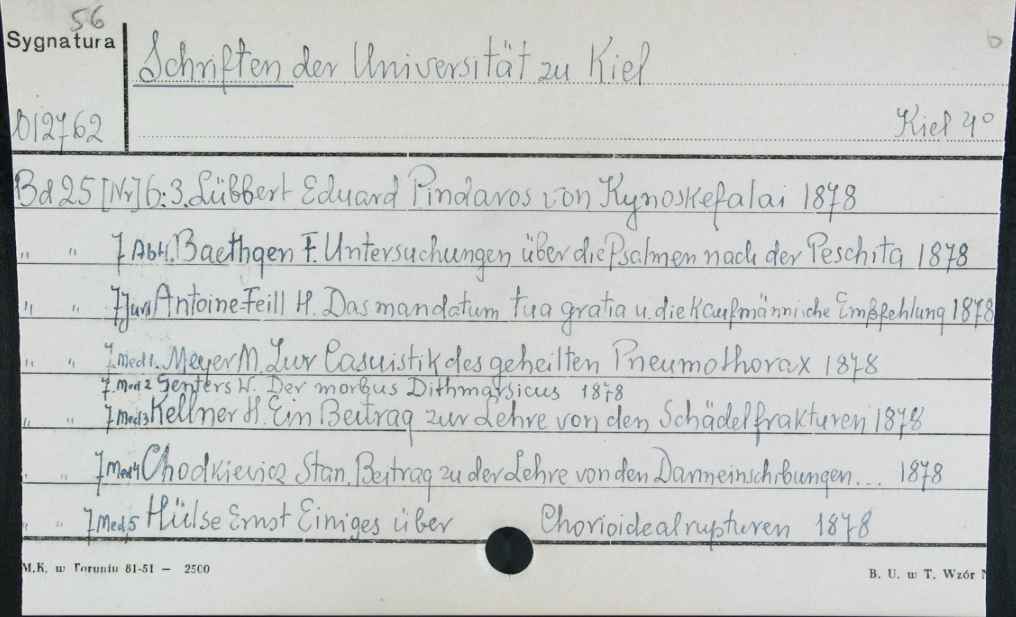 56
Sygnatura
Schriften der Universität zu Kiel
6
012762
Kiel 4°
Bd 25 [Nr] 6:3. Lübbert Eduard Pindaros von Kynoskefalai 1878
" " 7 Abt1. Baethgen F. Untersuchungen über die Psalmen nach der Peschita 1878
" " 7 Jur1 Antoine-Feill H. Das mandatum tua gratia u. die Kaufmännische Empfehlung 1878
" " 7 Med 1. Meyer M. Zur Casuistik des geheilten Pneumothorax 1878
7. Med 2 Jenters W. Der morbus Dithmarsicus 1878
" " 7 Med 3 Kellner H. Ein Beitrag zur Lehre von den Schädelfrakturen 1878
" " 7 Med 4 Chodkievicz Stan. Beitrag zu der Lehre von den Darmeinschibungen... 1878
" " 7 Med 5 Hülse Ernst Einiges über Chorioidealrupturen 1878
M.K. w Toruniu 81-51 — 2500
B. U. w T. Wzór